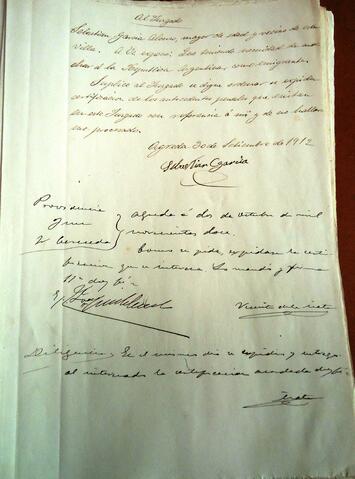 Al Juzgado
Sebastian Garcia Alonso, mayor de edad y vecino de esta
villa. A V. expone: Que teniendo necesidad de mar
char á la Republica Argentina, como emigrante.
Suplico al Juzgado se digne ordenar se expida
certificacion de los antecedentes penales que existan
en este Juzgado con referencia á mi y de no hallar
me procesado.
Agreda 30 de Setiembre de 1912
Sebastian Garcia
Providencia
Juez
Agreda á dos de Octubre de mil
novecientos doce.
Como se pide, expidase la certi
ficacion que se interesa. Lo mando y firma
Diligencia; En el mismo dia se expidio y entrego
al interesado la certificacion acordada doy fé